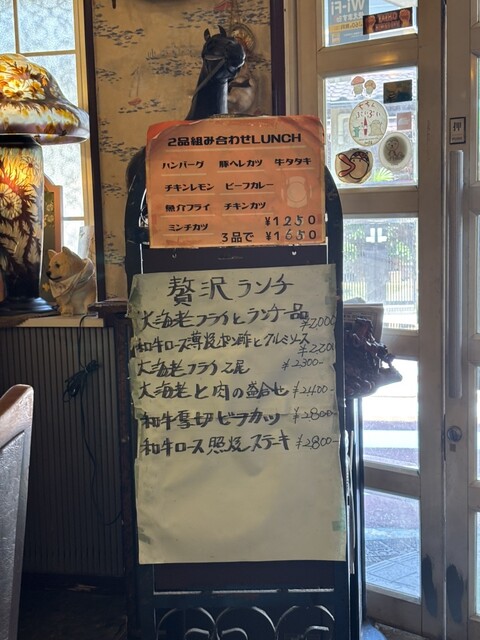 Wi-Fi
2品組み合わせLUNCH
ハンバーグ 豚ヘレカツ 牛タタキ
チキンレモン ビーフカレー
魚介フライ チキンカツ
ミンチカツ ¥1250
3品で ¥1650
押
贅沢ランチ
大海老フライとランチ一品 ¥2,000
和牛ロース薄焼ポン酢とクルミソース ¥2200
大海老フライ2尾 ¥2300-
大海老と肉の盛合せ ¥2400-
和牛厚切ビフカツ ¥2800-
和牛ロース照焼ステーキ ¥2800-